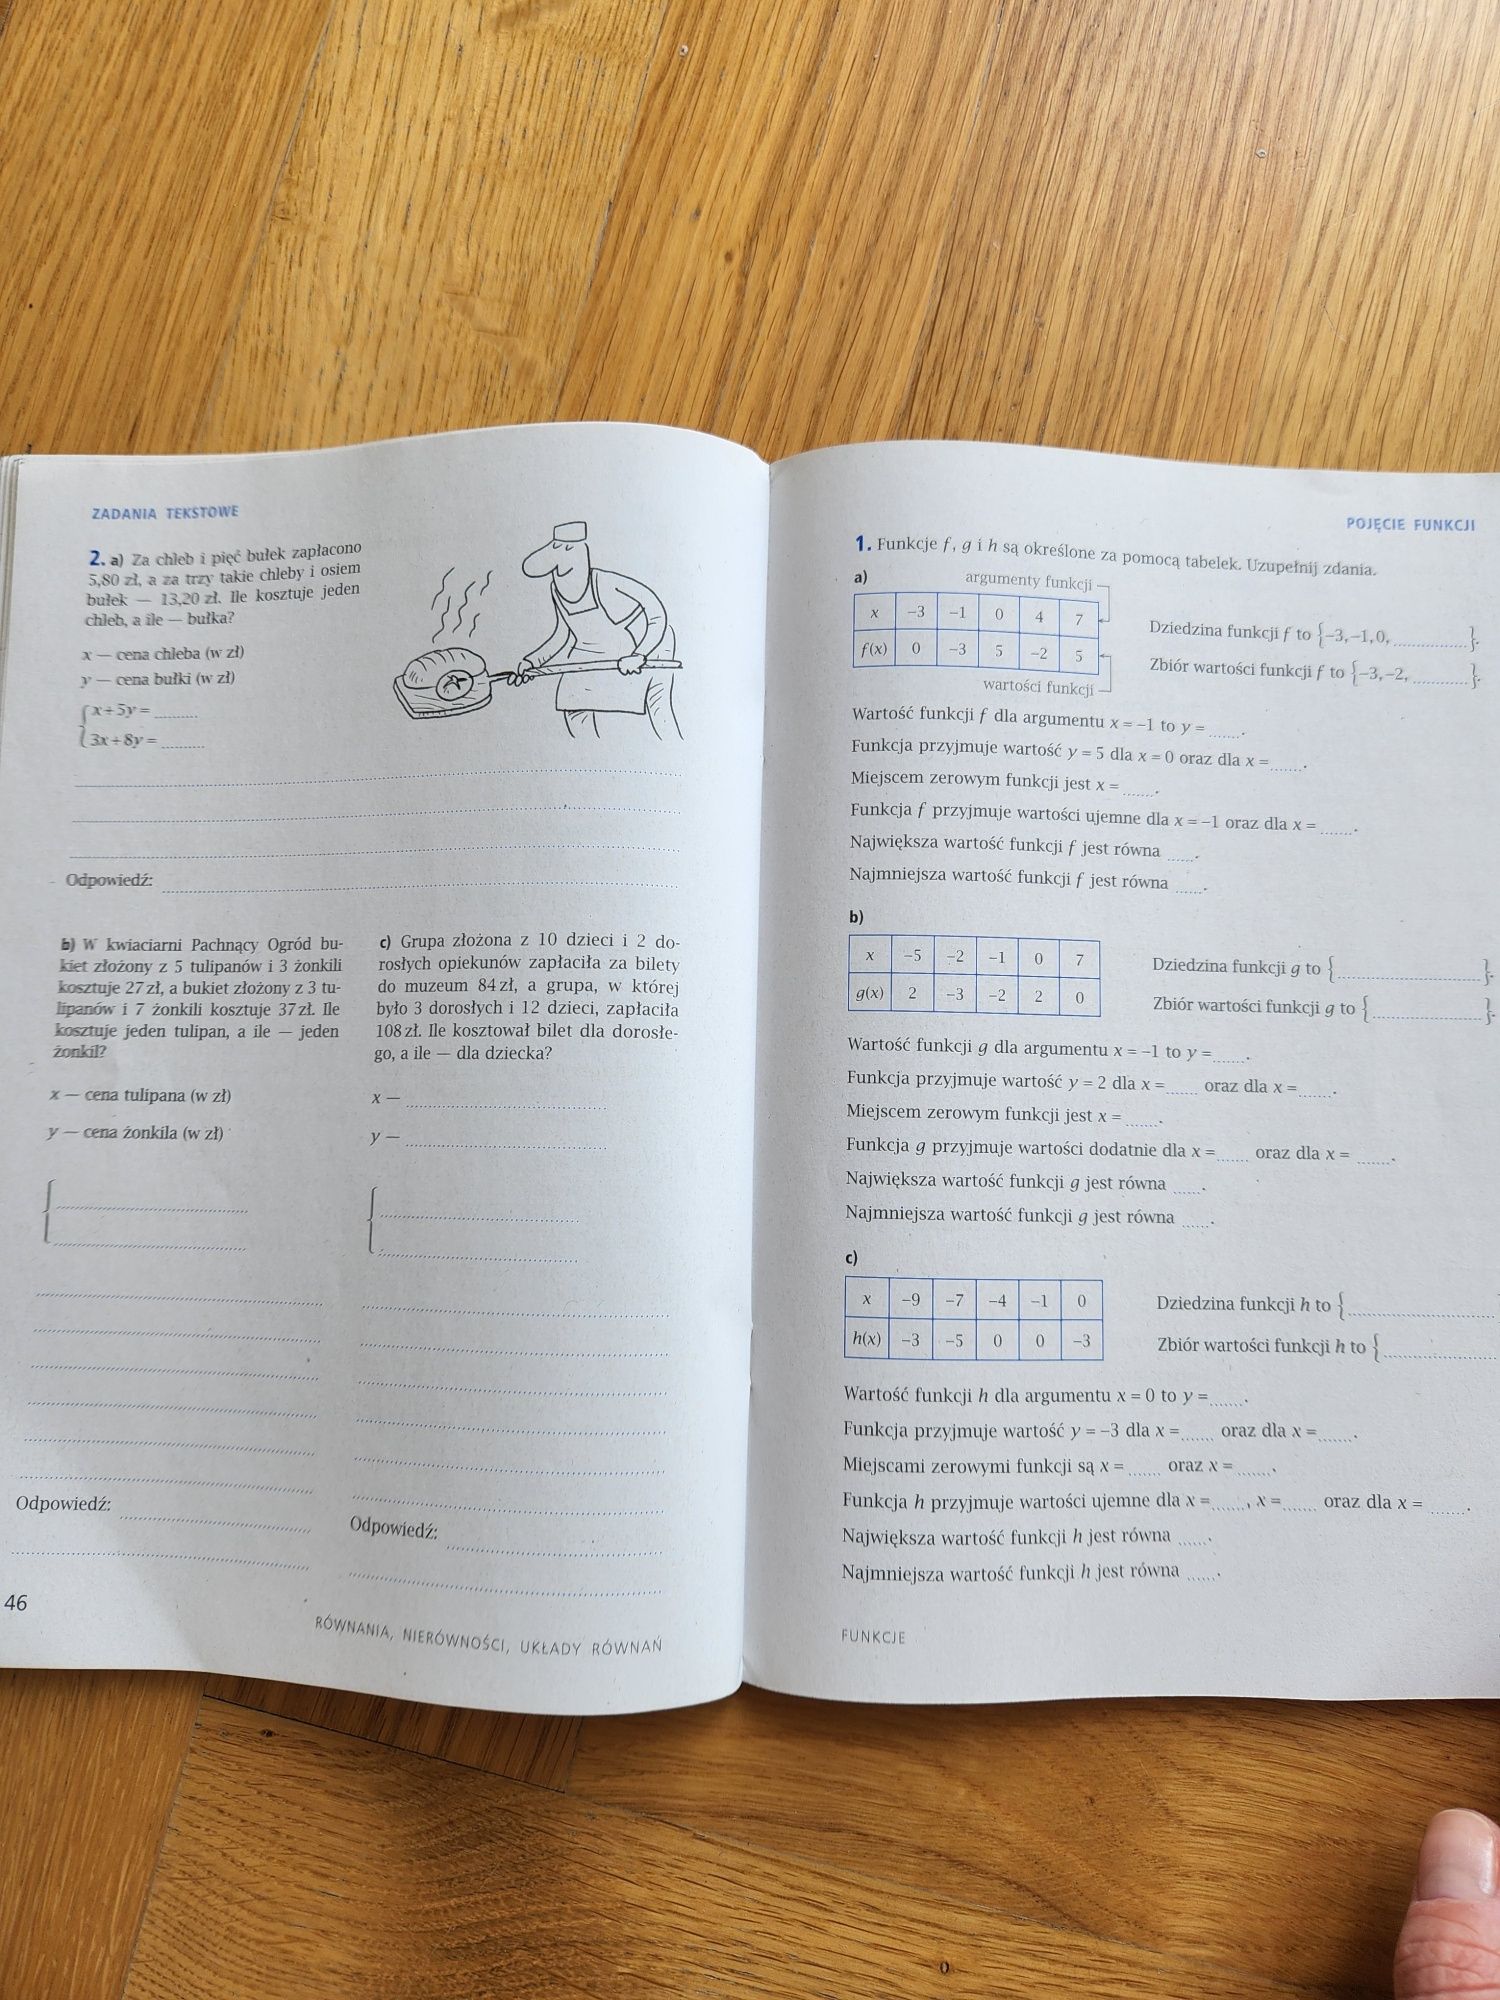 ZADANIA TEKSTOWE
2. a) Za chleb i pięć bułek zapłacono
5,80 zł, a za trzy takie chleby i osiem
bułek — 13,20 zł. Ile kosztuje jeden
chleb, a ile — bułka?
x — cena chleba (w zł)
y — cena bułki (w zł)
x + 5y = ........
3x + 8y = ........
Odpowiedź:
b) W kwiaciarni Pachnący Ogród bu-
kiet złożony z 5 tulipanów i 3 żonkili
kosztuje 27 zł, a bukiet złożony z 3 tu-
lipanów i 7 żonkili kosztuje 37 zł. Ile
kosztuje jeden tulipan, a ile — jeden
żonkil?
x — cena tulipana (w zł)
y — cena żonkila (w zł)
Odpowiedź:
c) Grupa złożona z 10 dzieci i 2 do-
rosłych opiekunów zapłaciła za bilety
do muzeum 84 zł, a grupa, w której
było 3 dorosłych i 12 dzieci, zapłaciła
108 zł. Ile kosztował bilet dla dorosłe-
go, a ile — dla dziecka?
x —
y —
Odpowiedź:
46
RÓWNANIA, NIERÓWNOŚCI, UKŁADY RÓWNAŃ
POJĘCIE FUNKCJI
1. Funkcje f, g i h są określone za pomocą tabelek. Uzupełnij zdania.
a)
argumenty funkcji
x -3 -1 0 4 7
f(x) 0 -3 5 -2 5
wartości funkcji
Dziedzina funkcji f to {-3, -1, 0, ........}.
Zbiór wartości funkcji f to {-3, -2, ........}.
Wartość funkcji f dla argumentu x = -1 to y = ...... .
Funkcja przyjmuje wartość y = 5 dla x = 0 oraz dla x = ...... .
Miejscem zerowym funkcji jest x = ...... .
Funkcja f przyjmuje wartości ujemne dla x = -1 oraz dla x = ...... .
Największa wartość funkcji f jest równa ...... .
Najmniejsza wartość funkcji f jest równa ...... .
b)
x -5 -2 -1 0 7
g(x) 2 -3 -2 2 0
Dziedzina funkcji g to {........}.
Zbiór wartości funkcji g to {........}.
Wartość funkcji g dla argumentu x = -1 to y = ...... .
Funkcja przyjmuje wartość y = 2 dla x = ...... oraz dla x = ...... .
Miejscem zerowym funkcji jest x = ...... .
Funkcja g przyjmuje wartości dodatnie dla x = ...... oraz dla x = ...... .
Największa wartość funkcji g jest równa ...... .
Najmniejsza wartość funkcji g jest równa ...... .
c)
x -9 -7 -4 -1 0
h(x) -3 -5 0 0 -3
Dziedzina funkcji h to {........
Zbiór wartości funkcji h to {........
Wartość funkcji h dla argumentu x = 0 to y = ...... .
Funkcja przyjmuje wartość y = -3 dla x = ...... oraz dla x = ...... .
Miejscami zerowymi funkcji są x = ...... oraz x = ...... .
Funkcja h przyjmuje wartości ujemne dla x = ......, x = ...... oraz dla x = ...... .
Największa wartość funkcji h jest równa ...... .
Najmniejsza wartość funkcji h jest równa ...... .
FUNKCJE